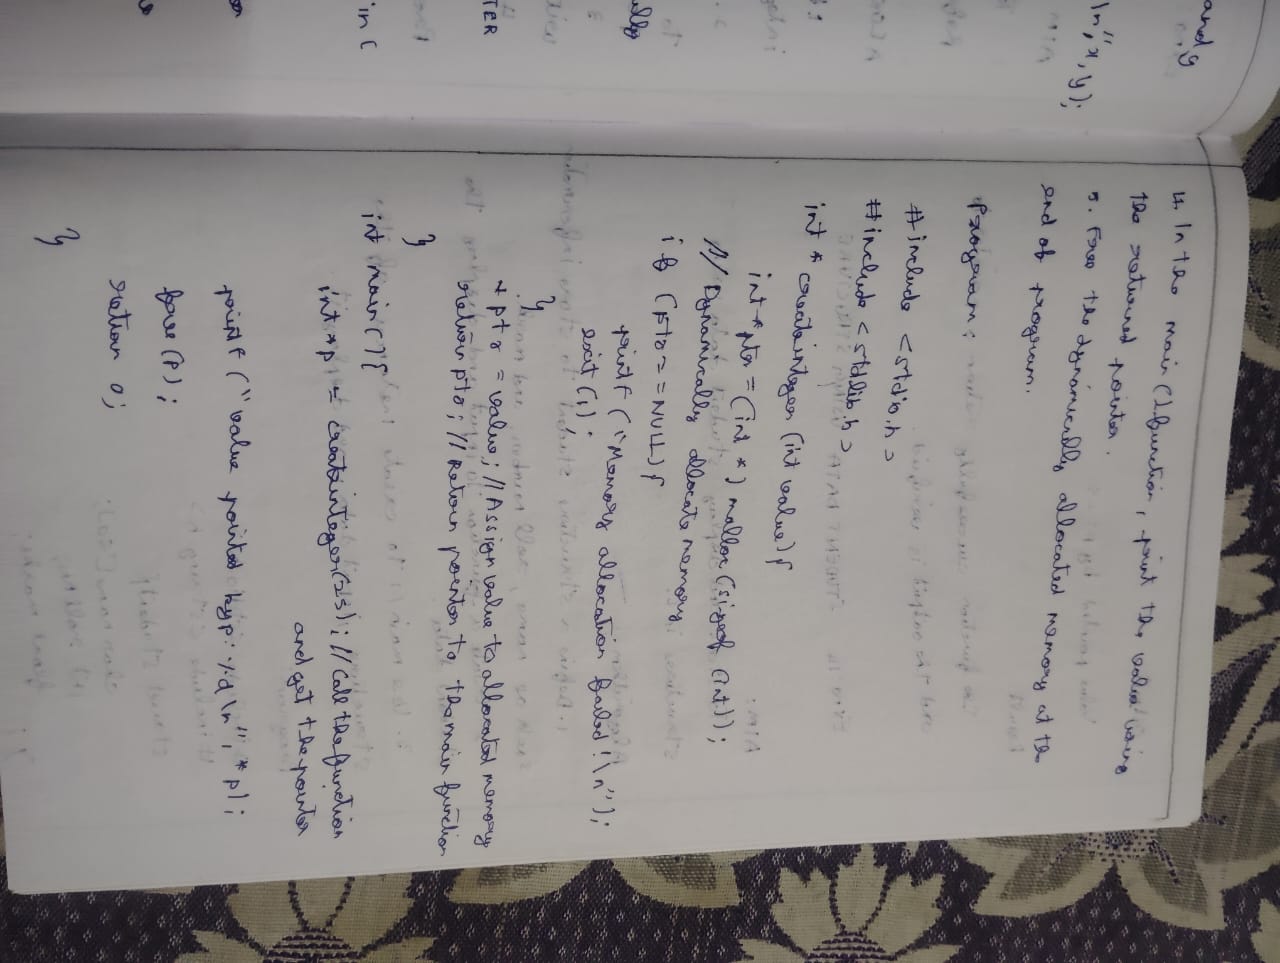 and y
\n", x, y);
TER
in (
4. In the main() function, print the value using
the returned pointer.
5. Free the dynamically allocated memory at the
end of program.
Program:
#include <stdio.h>
#include <stdlib.h>
int * createinteger (int value) {
int *ptr = (int *) malloc (sizeof (int));
// Dynamically allocate memory
if (ptr == NULL) {
printf ("Memory allocation failed!\n");
exit (1);
}
*ptr = value; // Assign value to allocated memory
return ptr; // Return pointer to the main function
}
int main() {
int *p = createinteger(25); // Call the function
and get the pointer
printf ("value pointed by p: %d\n", *p);
free (p);
return 0;
}